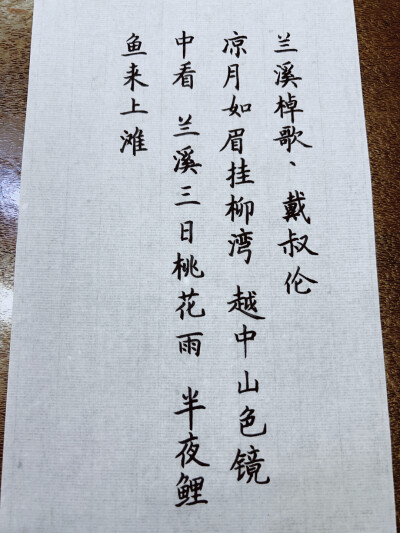 兰溪棹歌、戴叔伦
凉月如眉挂柳湾 越中山色镜
中看 兰溪三日桃花雨 半夜鲤
鱼来上滩